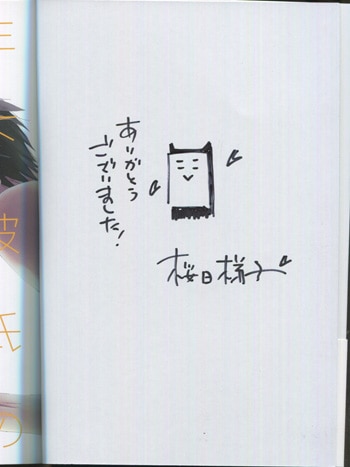 ありがとう
ございました!
桜日梯子
彼
氏
の